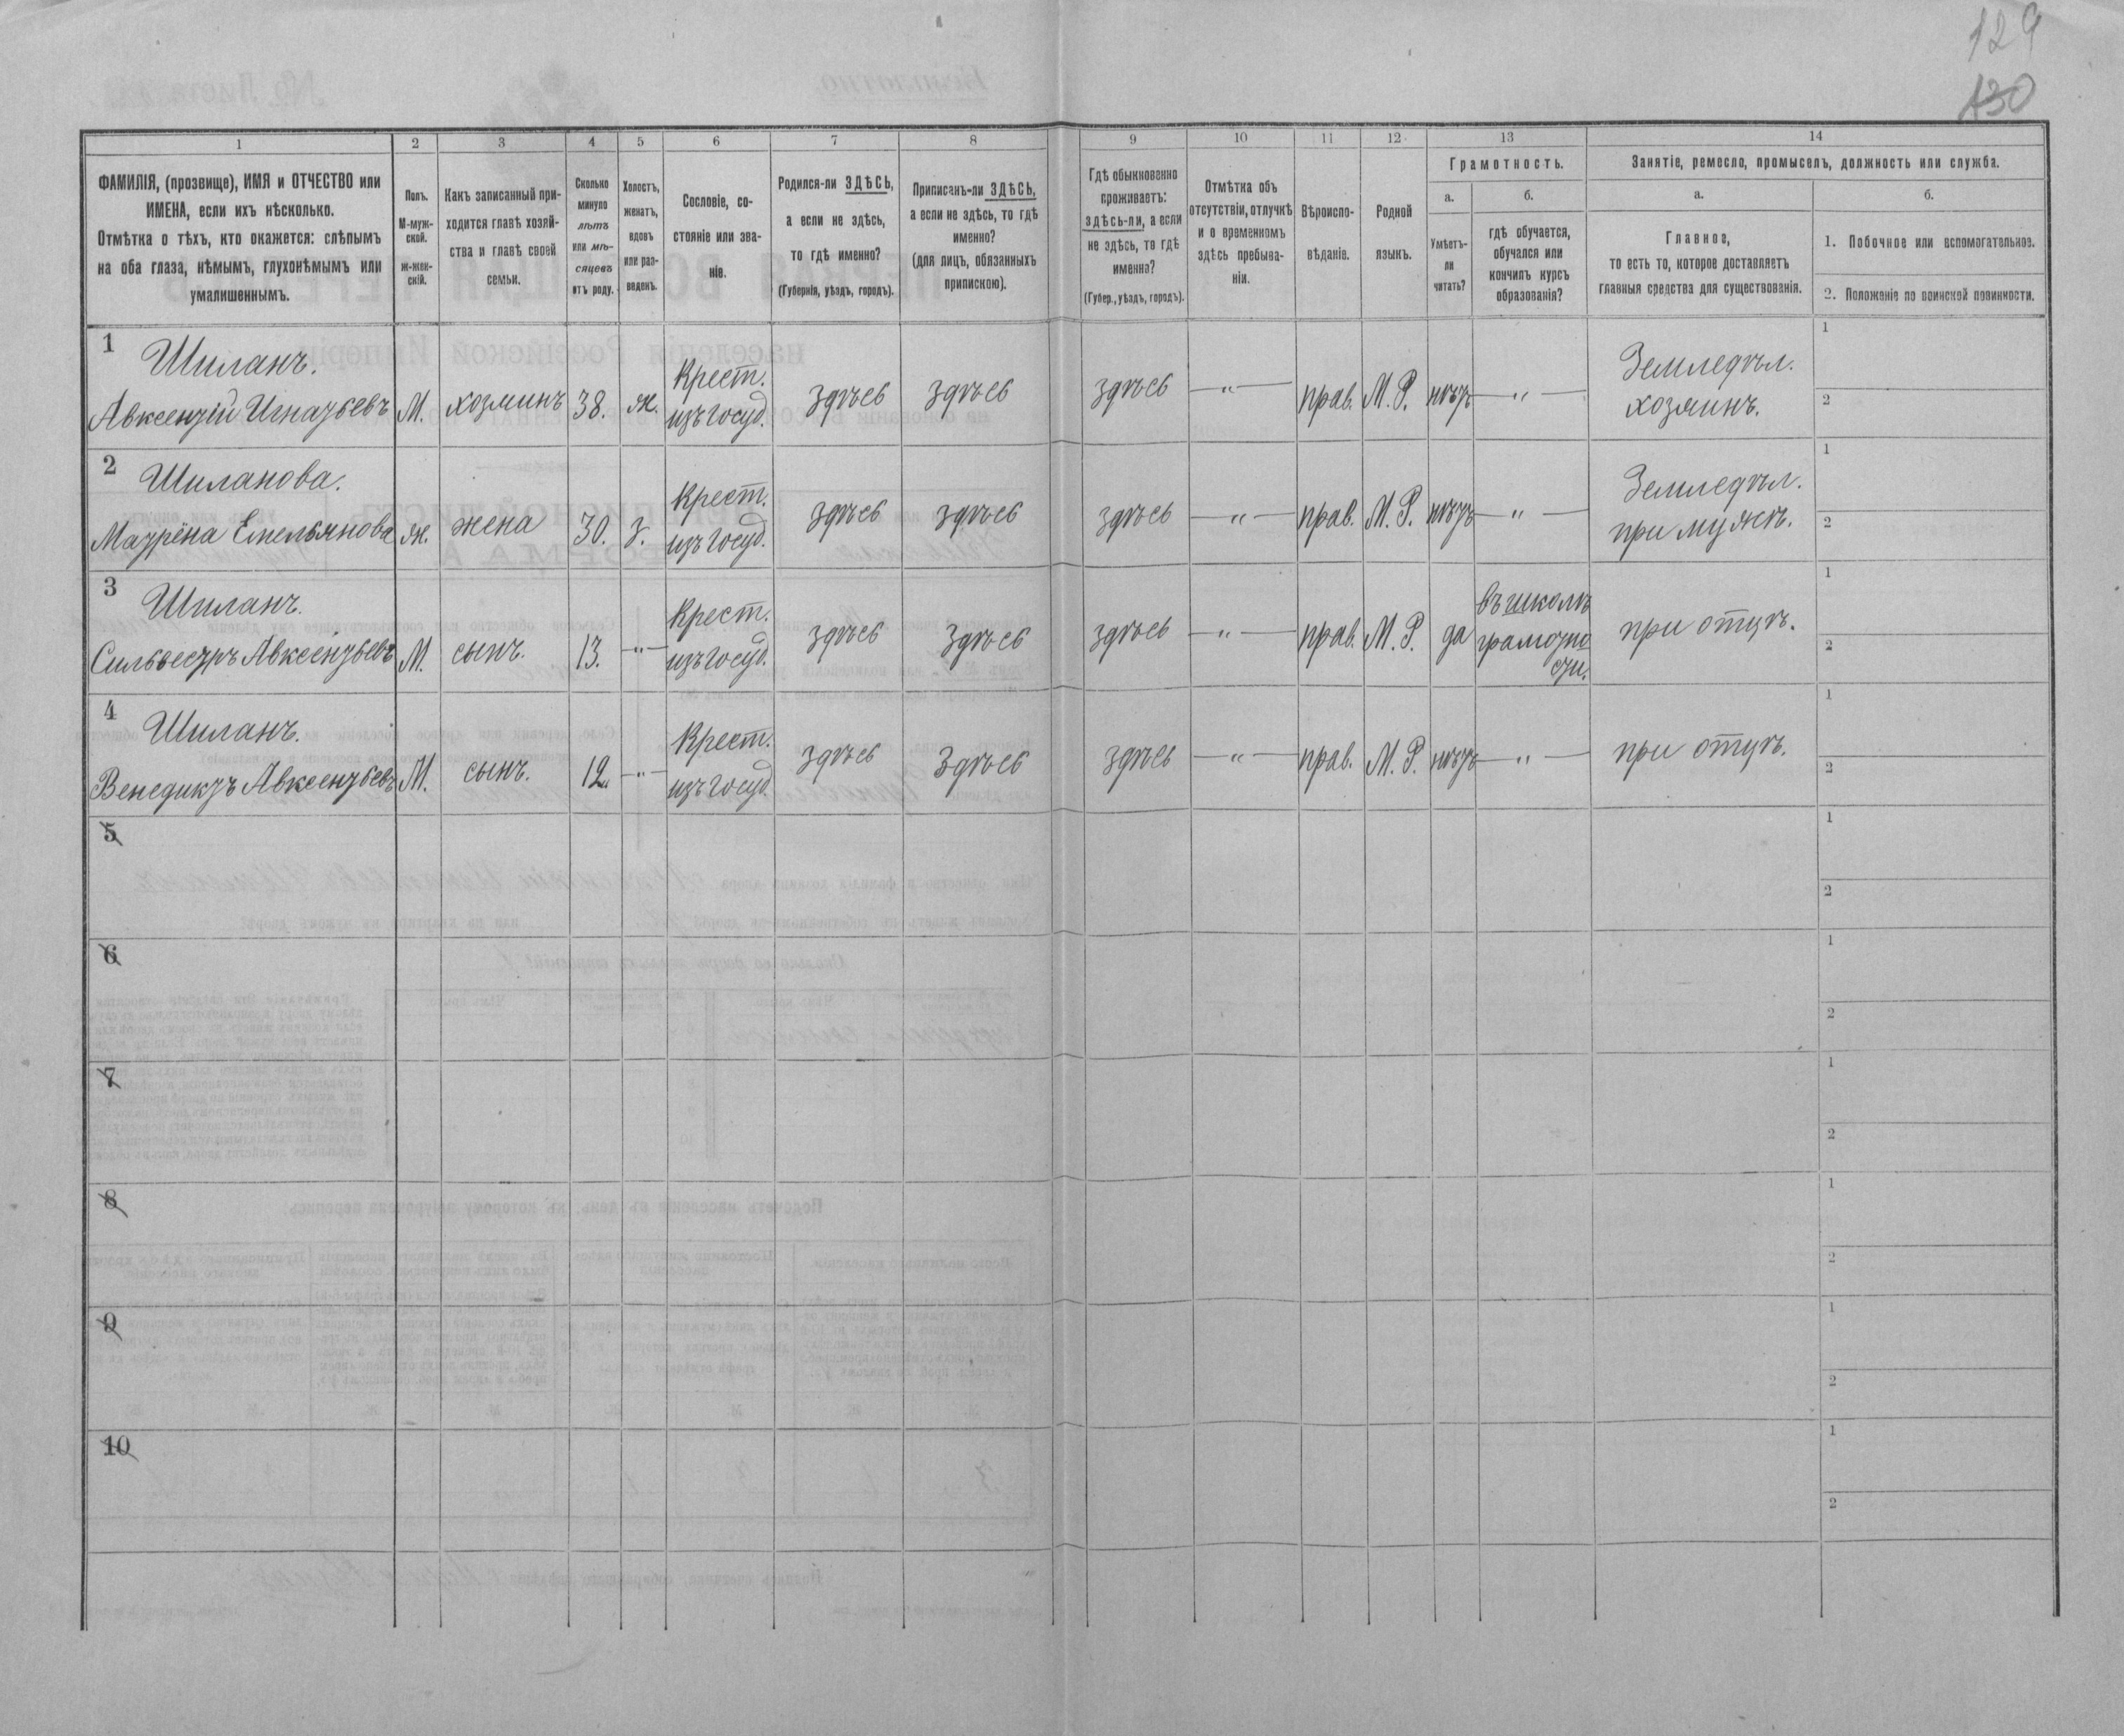 129
130
1
2
3
4
5
6
7
8
9
10
11
12
13
14
ФАМИЛІЯ, (прозвище), ИМЯ и ОТЧЕСТВО или
ИМЕНА, если ихъ нѣсколько.
Отмѣтка о тѣхъ, кто окажется: слѣпымъ
на оба глаза, нѣмымъ, глухонѣмымъ или
умалишеннымъ.
Полъ.
М-муж-
ской.
ж-жен-
скій.
Какъ записанный при-
ходится главѣ хозяй-
ства и главѣ своей
семьи.
Сколько
минуло
лѣтъ
или мѣ-
сяцевъ
отъ роду.
Холостъ,
женатъ,
вдовъ
или раз-
веденъ.
Сословіе, со-
стояніе или зва-
ніе.
Родился-ли ЗДѢСЬ,
а если не здѣсь,
то гдѣ именно?
(Губернія, уѣздъ, городъ).
Приписанъ-ли ЗДѢСЬ,
а если не здѣсь, то гдѣ
именно?
(для лицъ, обязанныхъ
припискою).
Гдѣ обыкновенно
проживаетъ:
здѣсь-ли, а если
не здѣсь, то гдѣ
именно?
(Губер., уѣздъ, городъ).
Отмѣтка объ
отсутствіи, отлучкѣ
и о временномъ
здѣсь пребыва-
ніи.
Вѣроиспо-
вѣданіе.
Родной
языкъ.
Грамотность.
а.
Умѣетъ-
ли
читать?
б.
гдѣ обучается,
обучался или
кончилъ курсъ
образованія?
Занятіе, ремесло, промыселъ, должность или служба.
а.
Главное,
то есть то, которое доставляетъ
главныя средства для существованія.
б.
1. Побочное или вспомогательное.
2. Положеніе по воинской повинности.
1
Шиланъ.
Авксентій Игнатьевъ
М.
хозяинъ
38.
ж.
Крест.
изъ госуд.
здѣсь
здѣсь
здѣсь
— „ —
прав.
М. Р.
нѣтъ
— „ —
Земледѣл.
хозяинъ.
1
2
2
Шиланова.
Матрёна Емельянова
ж.
жена
30.
з.
Крест.
изъ госуд.
здѣсь
здѣсь
здѣсь
— „ —
прав.
М. Р.
нѣтъ
— „ —
Земледѣл.
при мужѣ.
1
2
3
Шиланъ.
Сильвестръ Авксентьевъ
М.
сынъ.
13.
— „ —
Крест.
изъ госуд.
здѣсь
здѣсь
здѣсь
— „ —
прав.
М. Р.
да
въ школѣ
грамотно
сти.
при отцѣ.
1
2
4
Шиланъ.
Венедиктъ Авксентьевъ
М.
сынъ.
12.
— „ —
Крест.
изъ госуд.
здѣсь
здѣсь
здѣсь
— „ —
прав.
М. Р.
нѣтъ
— „ —
при отцѣ.
1
2
5
1
2
6
1
2
7
1
2
8
1
2
9
1
2
10
1
2